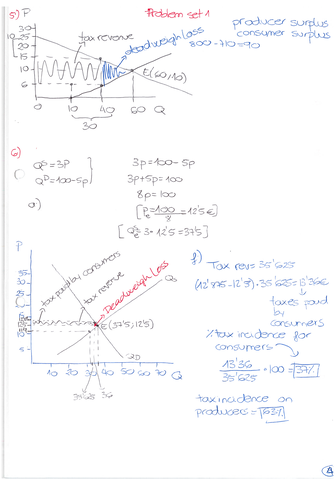 5) P
Problem set 1
producer surplus
consumer surplus
800-710=90
tax revenue
deadweigh loss
30
25
20
15
10
6
E(60,10)
0 10 20 40 60 Q
30
6)
Qs=3P
QD=100-5p
3p=100-5p
3p+5p=100
8p=100
a)
[Pe=100/8=12'5€]
[Qe=3·12'5=37'5]
P
tax paid by consumers
tax revenue
Deadweigh Loss
Qs
E(37'5,12'5)
QD
10 20 30 40 50 60 70 Q
35'625 36
f)
Tax rev=35'625
(12'875-12'5)·35'625=13'36€
taxes paid
by
consumers
% tax incidence for
consumers
13'36/35'625·100=37%
tax incidence on
producers=63%
4